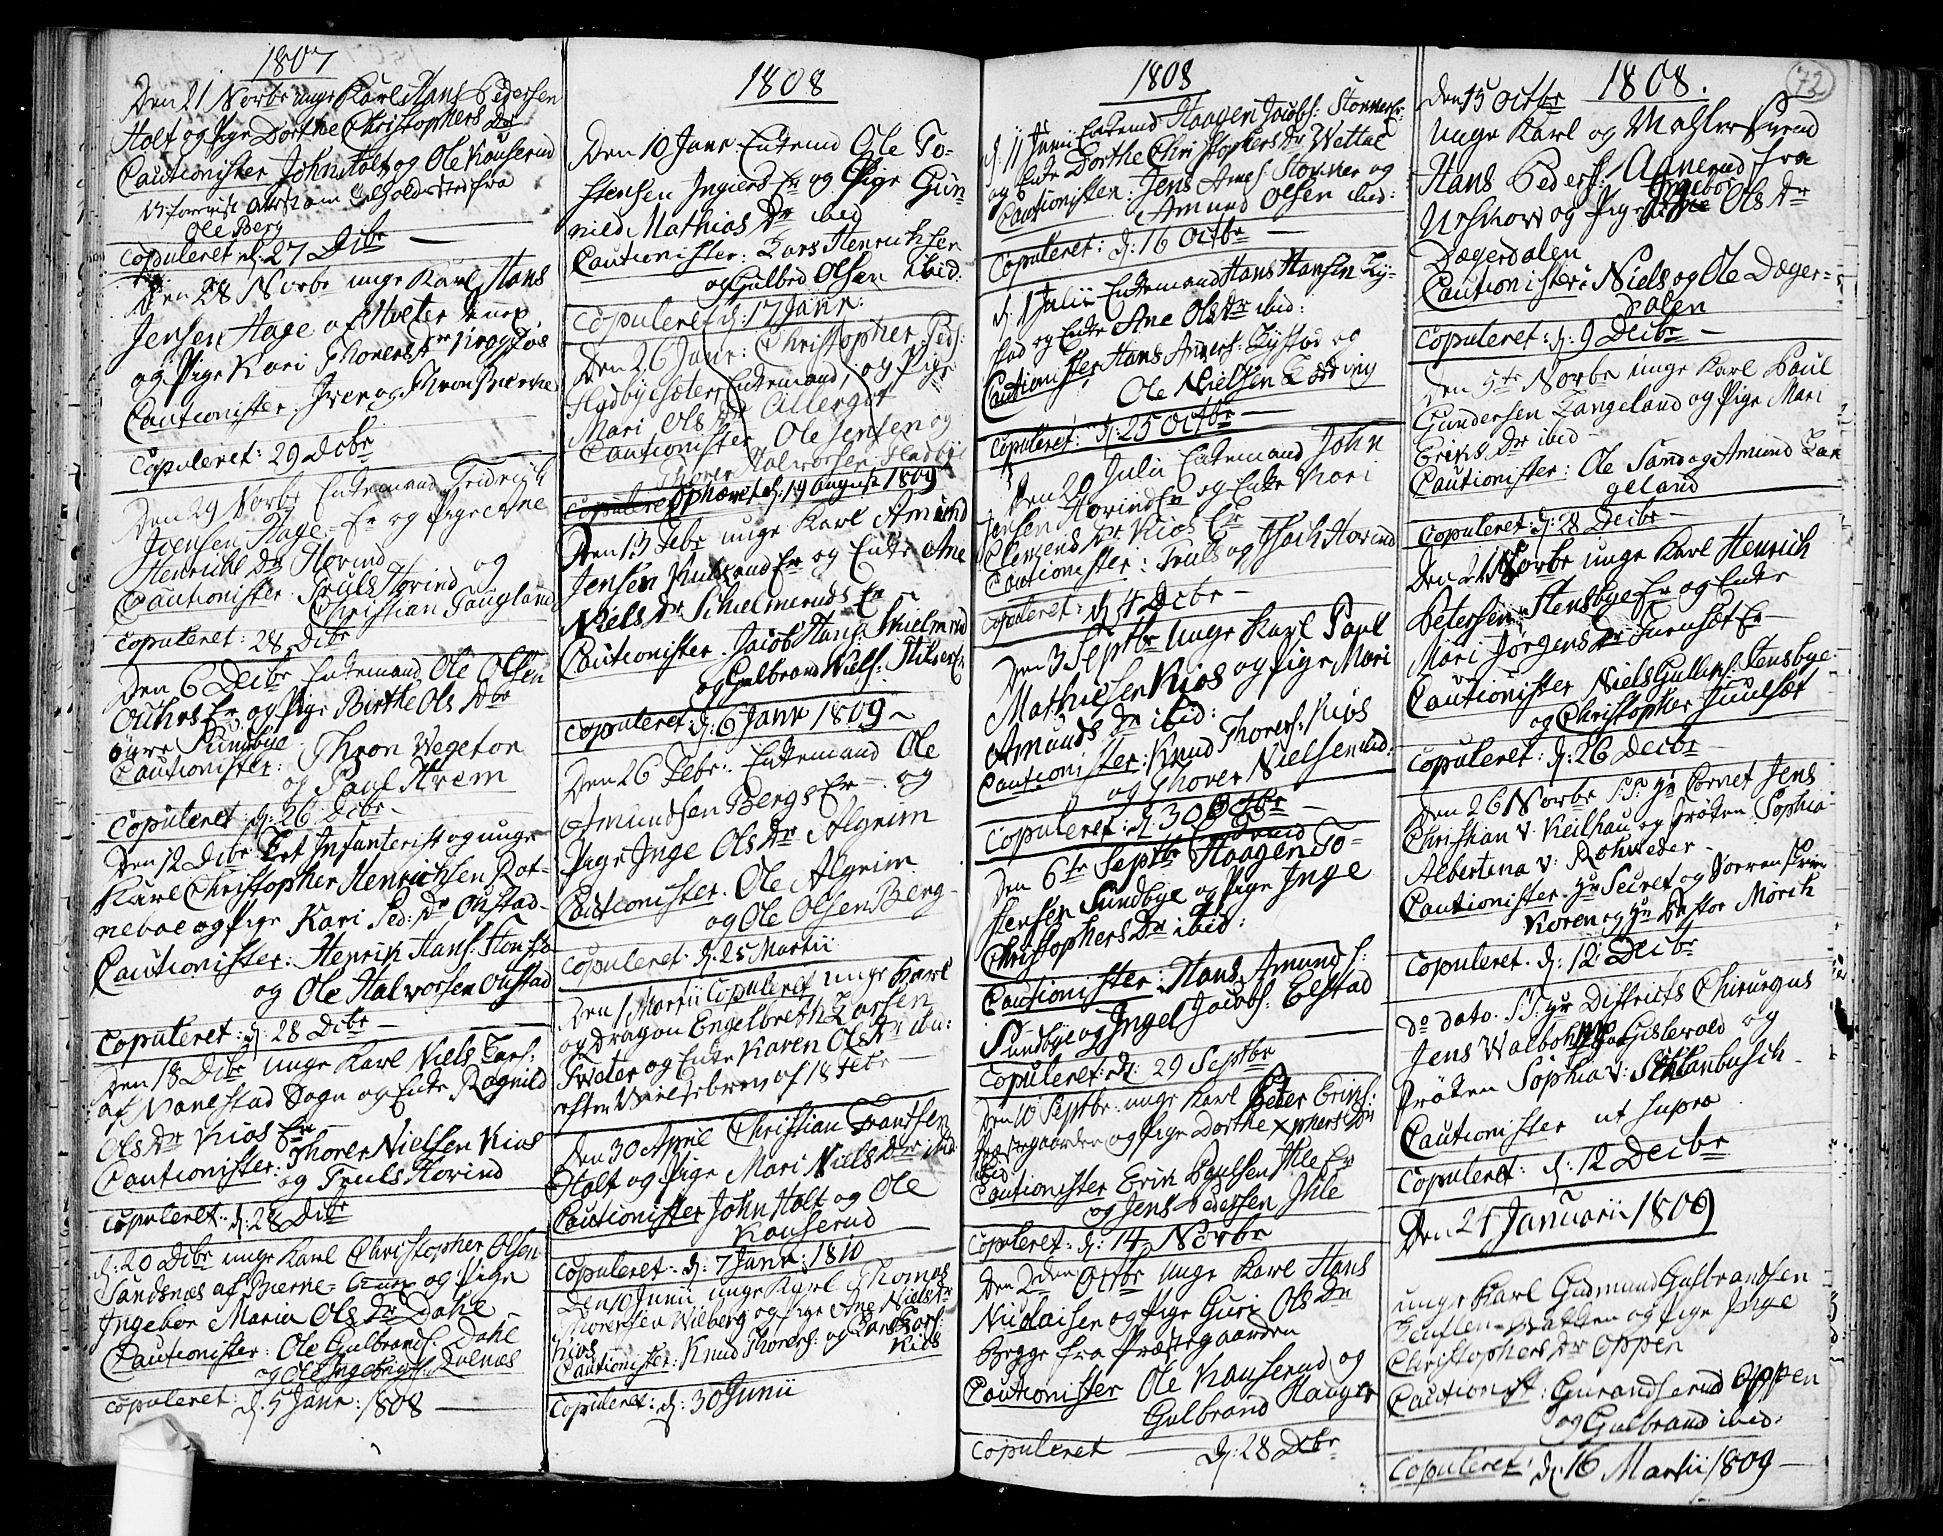 1807
Den 21 Norbr unge Karl Hans Pedersen
Holt og Pige Dorthe Christophers Dr
Cautionister John Holt og Ole Kauserud
Ole Berg
Copuleret d: 27 Dcbr
Den 28 Norbr unge Karl Hans
Jensen Hage af
og Pige Kari Thorers Dr
Cautionister. Iver og Thron Bierke
Copuleret: 29 Dcbr
Den 29 Norbr Enkemand Fridrich
Jensen Hage Er og Pige Ane
Henrichs Dr Hovind
Cautionister. Truls Hovind og
Christian Taugland
Copuleret: 28 Dcbr
Den 6 Decbr Enkemand Ole Olsen
Ouhrs Er og Pige Birthe Ols Dtr
øvre Sundbye
Cautionister: Thron Wegeton
og Paul Hrem
Copuleret d: 26 Dcbr
Den 12 Dcbr Infanterist og unge
Karl Christopher Henrichsen Rot-
neboe og Pige Kari Ped: Dr Onstad
Cautionister: Henrik Hans:
og Ole Halvorsen Onstad
Copuleret: d: 28 Dcbr
Den 18 Dcbr unge Karl Niels Lars:
af Nanestad Sogn og Enke Ragnild
Ols Dr Kios Er
Cautionister: Thorer Nielsen Kios
og Truls Hovind
Copuleret d: 28 Dcbr
d: 20 Dcbr unge Karl Christopher Olsen
Sandsnæs af Bierne- og Pige
Ingebor Maria Ols Dr Dahl
Cautionister: Ole Gulbrands: Dahl
og Ole Ingebrigts: Dalnæs
Copuleret: d. 5 Janr: 1808
1808
Den 10 Janr Enkemd Ole To-
stensen Ingiers Er og Pige Gun-
nild Mathias Dr ibid
Cautionister: Lars Henrichsen
og Gulbrd Olsen ibid:
Copuleret d: 17 Janr:
Den 26 Janr: Christopher Peds:
Hadbyesæter Enkemand, og Pige
Mari Ols Dr Ullergot
Cautionister. Ole Jensen og
Thorer Halvorsen Hadbye
Copuleret Ophævet d: 19 August 1809
Den 13 Febr unge Karl Amund
Jensen Er og Enke Ane
Niels Dr Schielmeruds Er
Cautionister. Jacob Hans: Skielmerud
og Gulbrand Niels:
Copuleret: d: 6 Janr 1809
Den 26 Febr: Enkemand Ole
Amundsen Bergs Er og
Pige Inge Ols Dr Algrim
Cautionister. Ole Algrim
og Ole Olsen Berg
Copuleret. d. 25 Martii
Den 1 Martii Copuleret unge Karl
og Dragon Engelbreth Larsen
Tveter og Enke Karen Ols Dr ibid:
efter af 18 Febr
Den 30 April Christian Frantsen
Holt og Pige Mari Niels Dr ibid
Cautionister John Holt og Ole
Kauserud
Copuleret d: 7 Janr: 1810
Den 10 Junii unge Karl Thomas
Thorersen Wilberg og Pige Ane Niels Dr
Kios
Cautionister: Knud Thorers: og Lars Thors:
Kios
Copuleret: d: 30 Junii
1808
d: 11 Junii Enkemd Haagen Jacobs: Stonner Er:
og Enke Dorthe Christophers Dr Wettal
Cautionister: Jens Amds: Stonner og
Amund Olsen ibid:
Copuleret: d: 16 Octbr
d. 1 Julii Enkemand Hans Hansen Ly-
stad og Enke Ane Ols Dr ibid:
Cautionister Hans Anders: Lystad og
Ole Nielsen Lødding
Copuleret: d: 25 Octbr
Den 20 Julii Enkemand John
Jensen Hovind Er og Enke Kari
Clemend Dr Kios Er
Cautionister: Truls og Isach Hovind
Copuleret: d 4 Decbr
Den 3 Septbr unge Karl Paul
Mathiesen Kios og Pige Mari
Amunds Dr ibid:
Cautionister: Knud Thorers: Kios
og Thorer Nielsen ibid:
Copuleret: d 30 Octbr
Den 6te Septbr Haagen To-
stensen Sundbye og Pige Inge
Christophers Dr ibid:
Cautionister: Hans Amunds:
Sundbye og Ingel Jacobs: Elstad
Copuleret: d: 29 Septbr
Den 10 Septbr unge Karl Peder Eriks:
Prestegaarden og Pige Dorthe Xphers Dr
ibid
Cautionister Erik Paulsen Ihle Er
og Jens Pedersen Ihle
Copuleret: d: 14 Norbr
Den 2den Octbr unge Karl Hans
Nicolaisen og Pige Guri Ols Dr
Begge fra Præstegaarden
Cautionister Ole Kauserud og
Gulbrand Hauger
Copuleret d: 28 Dcbr
1808.
72
Den 15 Octbr
Unge Karl og
Hans Peders: Aanerud fra
og Pige Ingebor Ols Dr
Dægerdalen
Cautionister: Niels og Ole Dæger=
dalen
Copuleret: d: 9 Decbr
Den 5te Norbr unge Karl Paul
Gundersen Langeland og Pige Mari
Eriks Dr ibid
Cautionister: Ole Sand og Amund Lan
geland
Copuleret: d: 28 Decbr
Den 21 Norbr unge Karl Henrich
Petersen Stensbye Er og Enke
Mari Jørgens Dr Er
Cautionister Niels Gulbr: Stensbye
og Christopher Juulsæt
Copuleret: d: 26 Decbr
Den 26 Norbr S: T: Hr Cornet Jens
Christian v. Keilhau og Frøken Sophia
Albertina v: Rohweder
Cautionister. Hr Secret og
Koren og Hr Pastor Mørch
Copuleret. d: 12 Decbr
Do dato. S: T: Hr Districts Chirurgus
Jens Walbohm Gislevold og
Frøken Sophia v:
Cautionister ut supra
Copuleret: d. 12 Decbr
Den 21 Januarii 1809
unge Karl Gudmund Gulbrandsen
og Pige Inge
Christophers Dr Oppen
Cautionist: Oppen
og Gulbrand ibid:
Copuleret: d: 16 Martii 1809